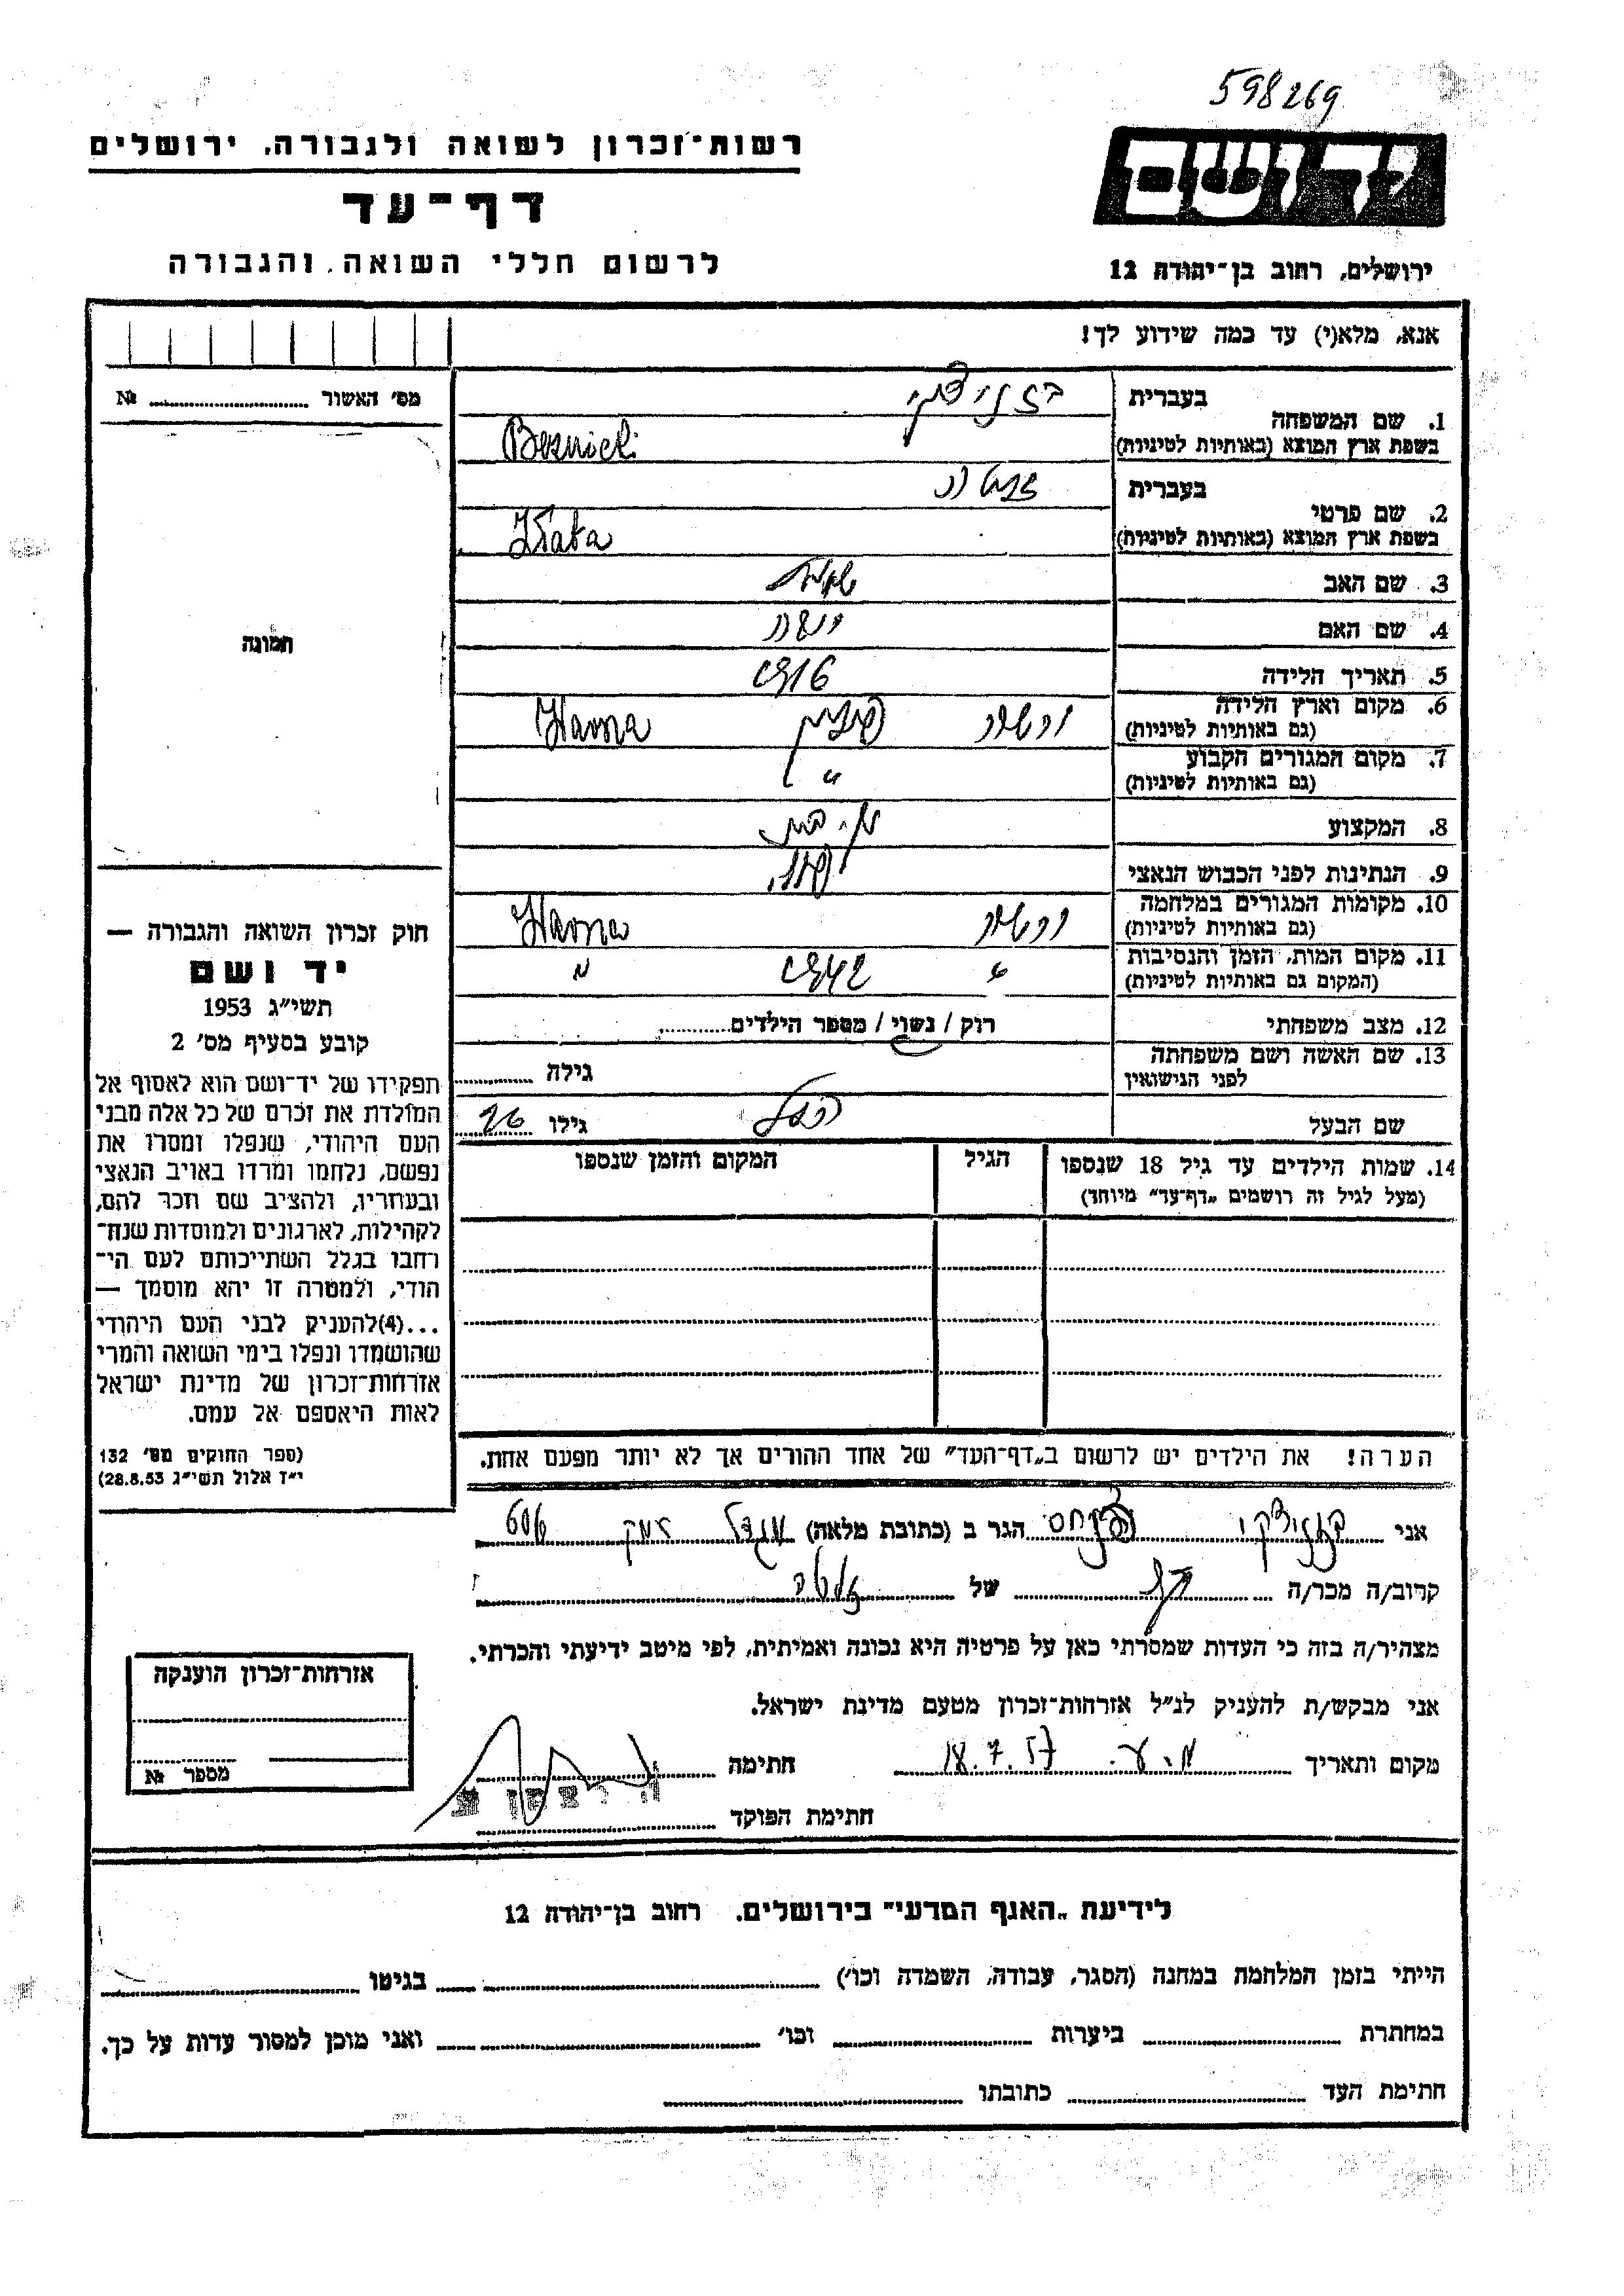 598269
רשות־זכרון לשואה ולגבורה, ירושלים
יד ושם
דף־עד
לרשום חללי השואה והגבורה
ירושלים, רחוב בן־יהודה 12
אנא, מלא(י) עד כמה שידוע לך!
מס׳ האשור № 
בעברית
1. שם המשפחה
בשפת ארץ המוצא (באותיות לטיניות) Beznicki
בעברית זלטה
2. שם פרטי
בשפת ארץ המוצא (באותיות לטיניות) Złata
3. שם האב
4. שם האם
5. תאריך הלידה 1916
6. מקום וארץ הלידה ורשה פולין
(גם באותיות לטיניות)
7. מקום המגורים הקבוע "
(גם באותיות לטיניות)
8. המקצוע
9. הנתינות לפני הכבוש הנאצי
10. מקומות המגורים במלחמה ורשה
(גם באותיות לטיניות)
11. מקום המות, הזמן והנסיבות " 1942 "
(המקום גם באותיות לטיניות)
12. מצב משפחתי רוק / נשוי / מספר הילדים
13. שם האשה ושם משפחתה
לפני הנישואין גילה
שם הבעל גילו 26
14. שמות הילדים עד גיל 18 שנספו הגיל המקום והזמן שנספו
(מעל לגיל זה רושמים „דף־עד״ מיוחד)
הערה! את הילדים יש לרשום ב„דף־העד״ של אחד ההורים אך לא יותר מפעם אחת.
תמונה
חוק זכרון השואה והגבורה —
יד ושם
תשי״ג 1953
קובע בסעיף מס׳ 2
תפקידו של יד־ושם הוא לאסוף אל
המולדת את זכרם של כל אלה מבני
העם היהודי, שנפלו ומסרו את
נפשם, נלחמו ומרדו באויב הנאצי
ובעוזריו, ולהציב שם וזכר להם,
לקהילות, לארגונים ולמוסדות שנח־
רחבו בגלל השתייכותם לעם הי־
הודי, ולמטרה זו יהא מוסמך —
...(4)להעניק לבני העם היהודי
שהושמדו ונפלו בימי השואה והמרי
אזרחות־זכרון של מדינת ישראל
לאות היאספם אל עמם.
(ספר החוקים מס׳ 132
י״ז אלול תשי״ג 28.8.53)
אני פנחס הגר ב (כתובת מלאה) מגדל העמק 606
קרוב/ה מכר/ה של זלטה
מצהיר/ה בזה כי העדות שמסרתי כאן על פרטיה היא נכונה ואמיתית, לפי מיטב ידיעתי והכרתי.
אני מבקש/ת להעניק לנ״ל אזרחות־זכרון מטעם מדינת ישראל.
מקום ותאריך 18.7.57 חתימה
חתימת הפוקד
אזרחות־זכרון הוענקה
מספר №
לידיעת „האגף המדעי״ בירושלים. רחוב בן־יהודה 12
הייתי בזמן המלחמה במחנה (הסגר, עבודה, השמדה וכו׳) בגיטו
במחתרת ביערות וכו׳ ואני מוכן למסור עדות על כך.
חתימת העד כתובתו